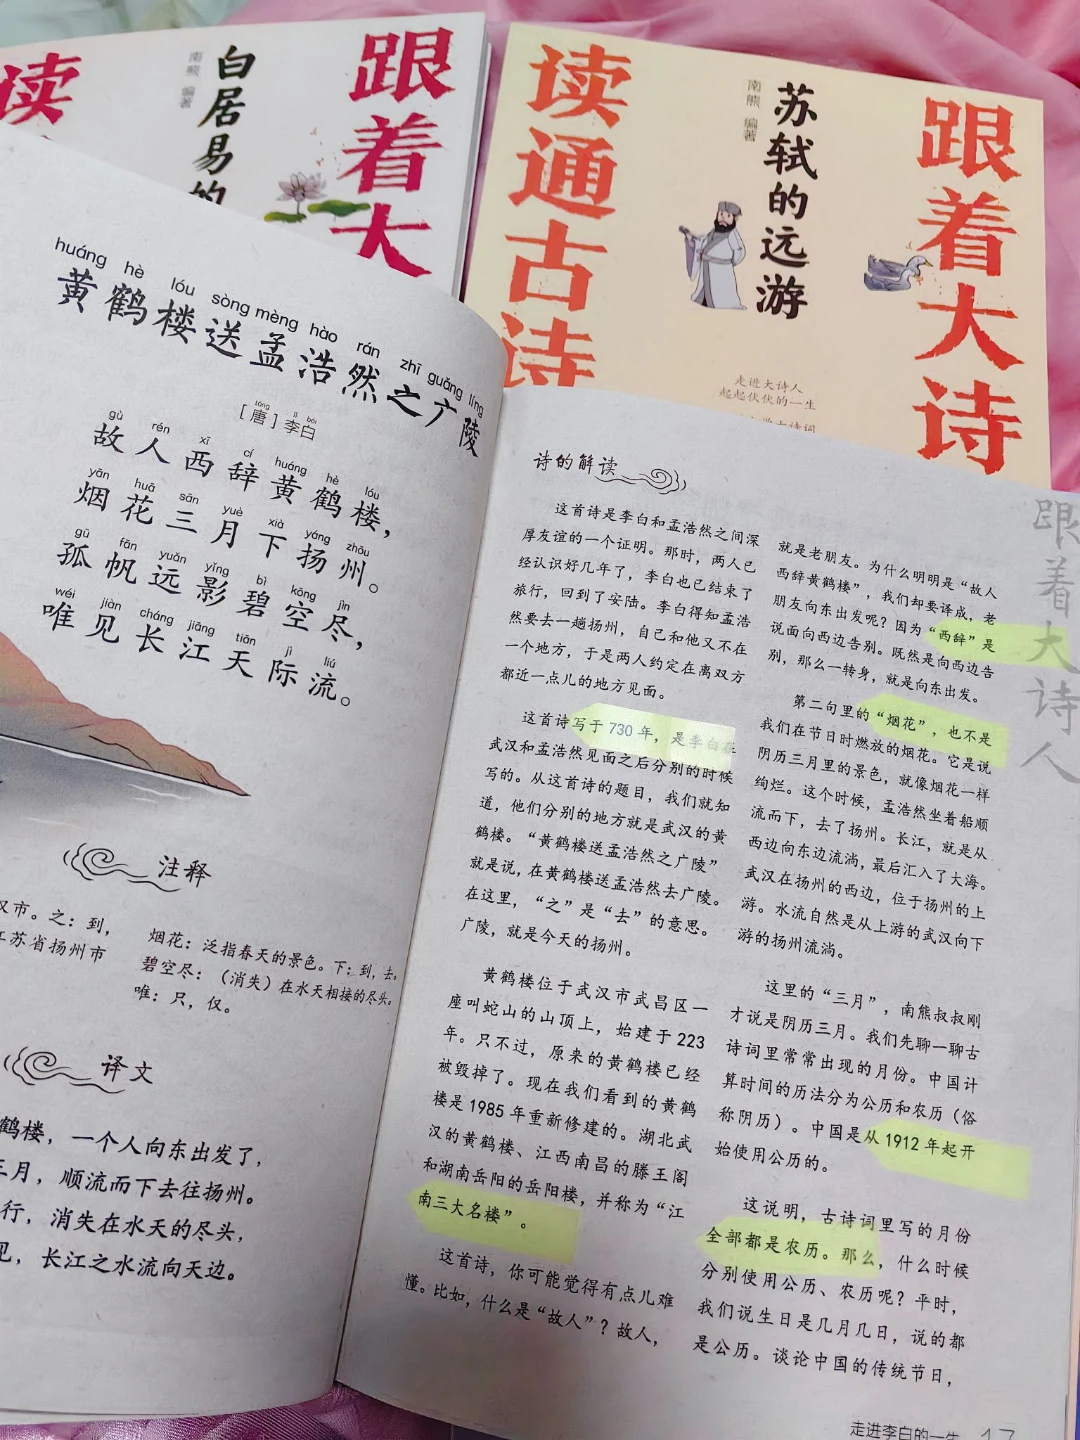 跟着大
白居易的
南熊 编著
读
跟着大诗
苏轼的远游
南熊 编著
读通古诗
走进大诗人
起起伏伏的一生
huáng hè lóu sòng mèng hào rán zhī guǎng líng
黄鹤楼送孟浩然之广陵
táng lǐ bái
[唐]李白
gù rén xī cí huáng hè lóu
故人西辞黄鹤楼，
yān huā sān yuè xià yáng zhōu
烟花三月下扬州。
gū fān yuǎn yǐng bì kōng jìn
孤帆远影碧空尽，
wéi jiàn cháng jiāng tiān jì liú
唯见长江天际流。
注释
汉市。之：到，
江苏省扬州市
烟花：泛指春天的景色。下：到，去。
碧空尽：（消失）在水天相接的尽头。
唯：只，仅。
译文
鹤楼，一个人向东出发了，
三月，顺流而下去往扬州。
行，消失在水天的尽头，
见，长江之水流向天边。
诗的解读
这首诗是李白和孟浩然之间深
厚友谊的一个证明。那时，两人已
经认识好几年了，李白也已结束了
旅行，回到了安陆。李白得知孟浩
然要去一趟扬州，自己和他又不在
一个地方，于是两人约定在离双方
都近一点儿的地方见面。
这首诗写于730年，是李白在
武汉和孟浩然见面之后分别的时候
写的。从这首诗的题目，我们就知
道，他们分别的地方就是武汉的黄
鹤楼。“黄鹤楼送孟浩然之广陵”
就是说，在黄鹤楼送孟浩然去广陵。
在这里，“之”是“去”的意思。
广陵，就是今天的扬州。
黄鹤楼位于武汉市武昌区一
座叫蛇山的山顶上，始建于223
年。只不过，原来的黄鹤楼已经
被毁掉了。现在我们看到的黄鹤
楼是1985年重新修建的。湖北武
汉的黄鹤楼、江西南昌的滕王阁
和湖南岳阳的岳阳楼，并称为“江
南三大名楼”。
这首诗，你可能觉得有点儿难
懂。比如，什么是“故人”？故人，
就是老朋友。为什么明明是“故人
西辞黄鹤楼”，我们却要译成，老
朋友向东出发呢？因为“西辞”是
说面向西边告别。既然是向西边告
别，那么一转身，就是向东出发。
第二句里的“烟花”，也不是
我们在节日时燃放的烟花。它是说
阴历三月里的景色，就像烟花一样
绚烂。这个时候，孟浩然坐着船顺
流而下，去了扬州。长江，就是从
西边向东边流淌，最后汇入了大海。
武汉在扬州的西边，位于扬州的上
游。水流自然是从上游的武汉向下
游的扬州流淌。
这里的“三月”，南熊叔叔刚
才说是阴历三月。我们先聊一聊古
诗词里常常出现的月份。中国计
算时间的历法分为公历和农历（俗
称阴历）。中国是从1912年起开
始使用公历的。
这说明，古诗词里写的月份
全部都是农历。那么，什么时候
分别使用公历、农历呢？平时，
我们说生日是几月几日，说的都
是公历。谈论中国的传统节日，
跟着大诗人
走进李白的一生 17